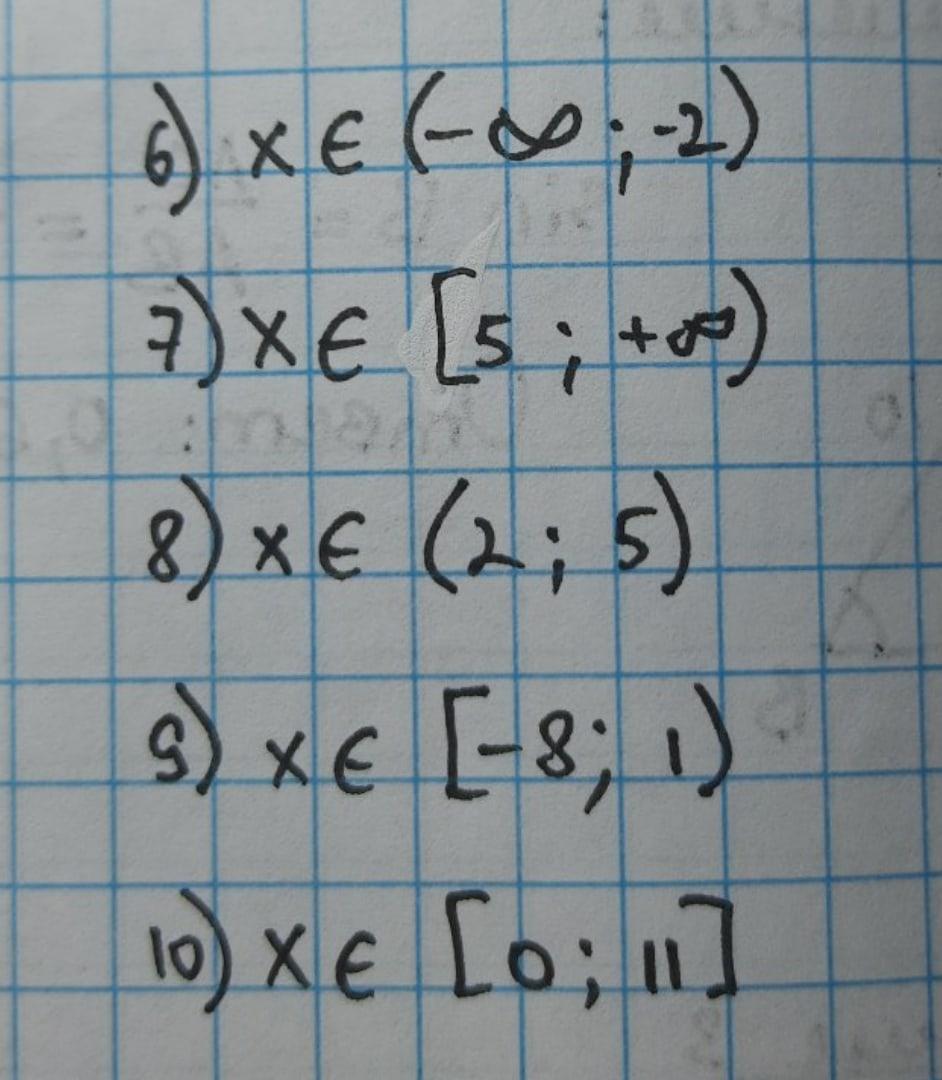 6) x ∈ (-∞ ; -2)
7) x ∈ [5 ; +∞)
8) x ∈ (2 ; 5)
9) x ∈ [-8; 1)
10) x ∈ [0; 11]